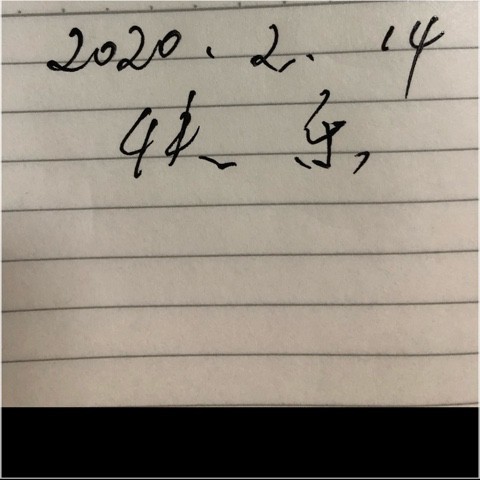 2020.2.14
快乐